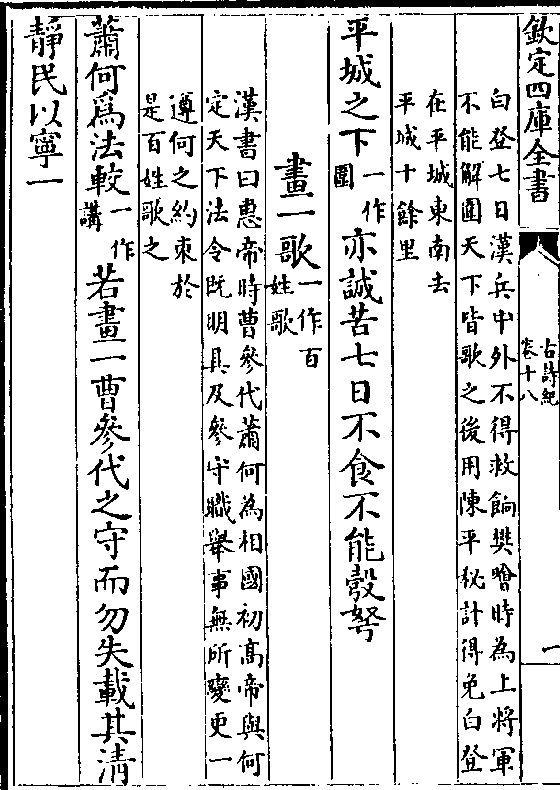 欽定四庫全書
古詩紀
卷十八
一
白登七日漢兵中外不得救餉樊噲時為上將軍
不能解圍天下皆歌之後用陳平秘計得免白登
在平城東南去
平城十餘里
平城之下一作圍亦誠苦七日不食不能彀弩
畫一歌一作百姓歌
漢書曰惠帝時曹參代蕭何為相國初高帝與何
定天下法令既明具及參守職舉事無所變更一
遵何之約束於
是百姓歌之
蕭何為法較一作講若畫一曹參代之守而勿失載其清
靜民以寧一